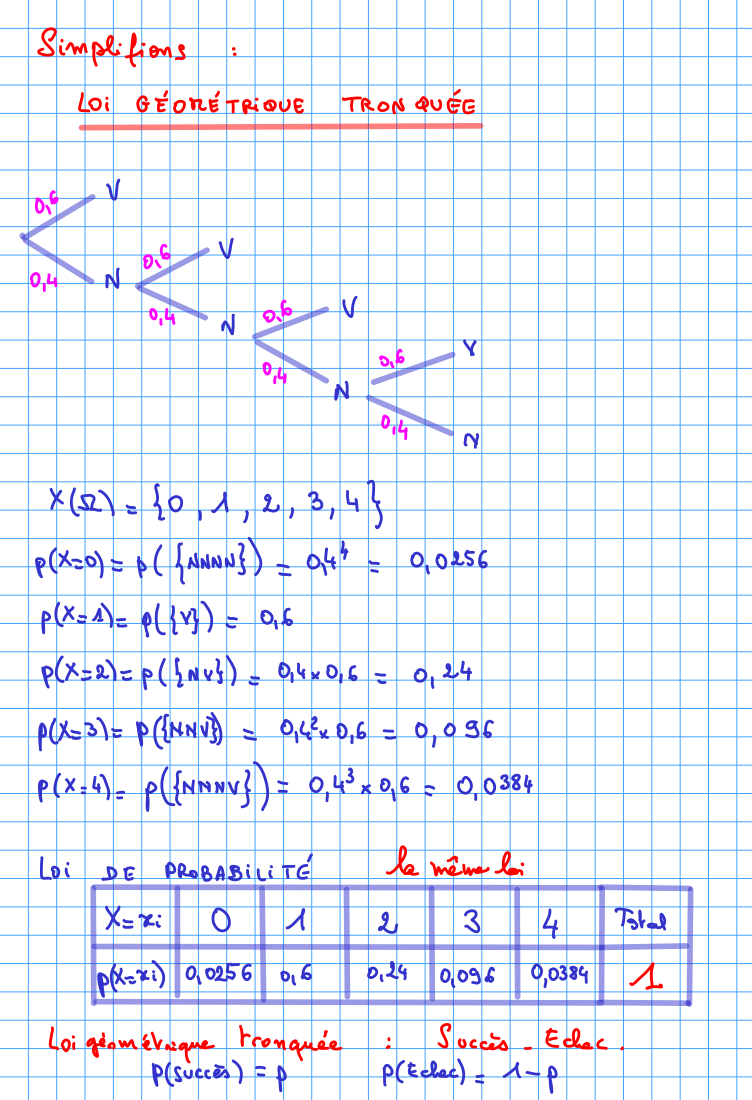 Simplifions :
LOI GÉOMÉTRIQUE TRONQUÉE
0,6 V
0,4 N
0,6 V
0,4 N
0,6 V
0,4 N
0,6 V
0,4 N
X(Ω) = {0, 1, 2, 3, 4}
p(X=0) = p({NNNN}) = 0,4⁴ = 0,0256
p(X=1) = p({V}) = 0,6
p(X=2) = p({NV}) = 0,4 × 0,6 = 0,24
p(X=3) = p({NNV}) = 0,4² × 0,6 = 0,096
p(X=4) = p({NNNV}) = 0,4³ × 0,6 = 0,0384
LOI DE PROBABILITÉ la même loi
X=xi 0 1 2 3 4 Total
p(X=xi) 0,0256 0,6 0,24 0,096 0,0384 1
Loi géométrique tronquée : Succès - Echec.
p(succès) = p p(Echec) = 1-p